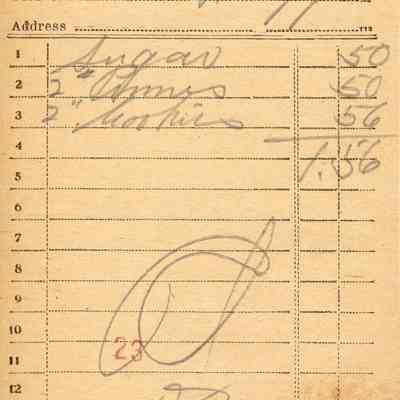 Address
1 Sugar 50
2 2" Prunes 50
3 2" Cookies 56
4 1.56
5
6
7
8
9
10
23
11
12